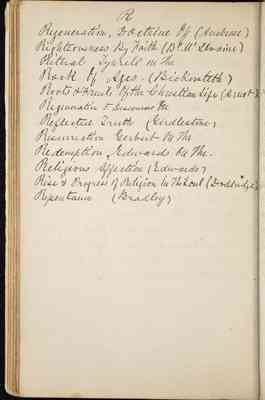 R
Regeneration, Doctrine Of (Anderson)
Righteousness By Faith (Bp McIlvaine)
Ritual Tyrrell on the
Rock Of Ages. (Bickersteth)
Roots & Fruits Of the Christian Life (Arnot)
Regeneration & Sermons &c
Reflected Truth (Girdlestone)
Resurrection Gerbert On The
Redemption, Edwards On The.
Religious Affection (Edwards)
Rise & Progress of Religion In The Soul (Doddridge)
Repentance (Bradley)